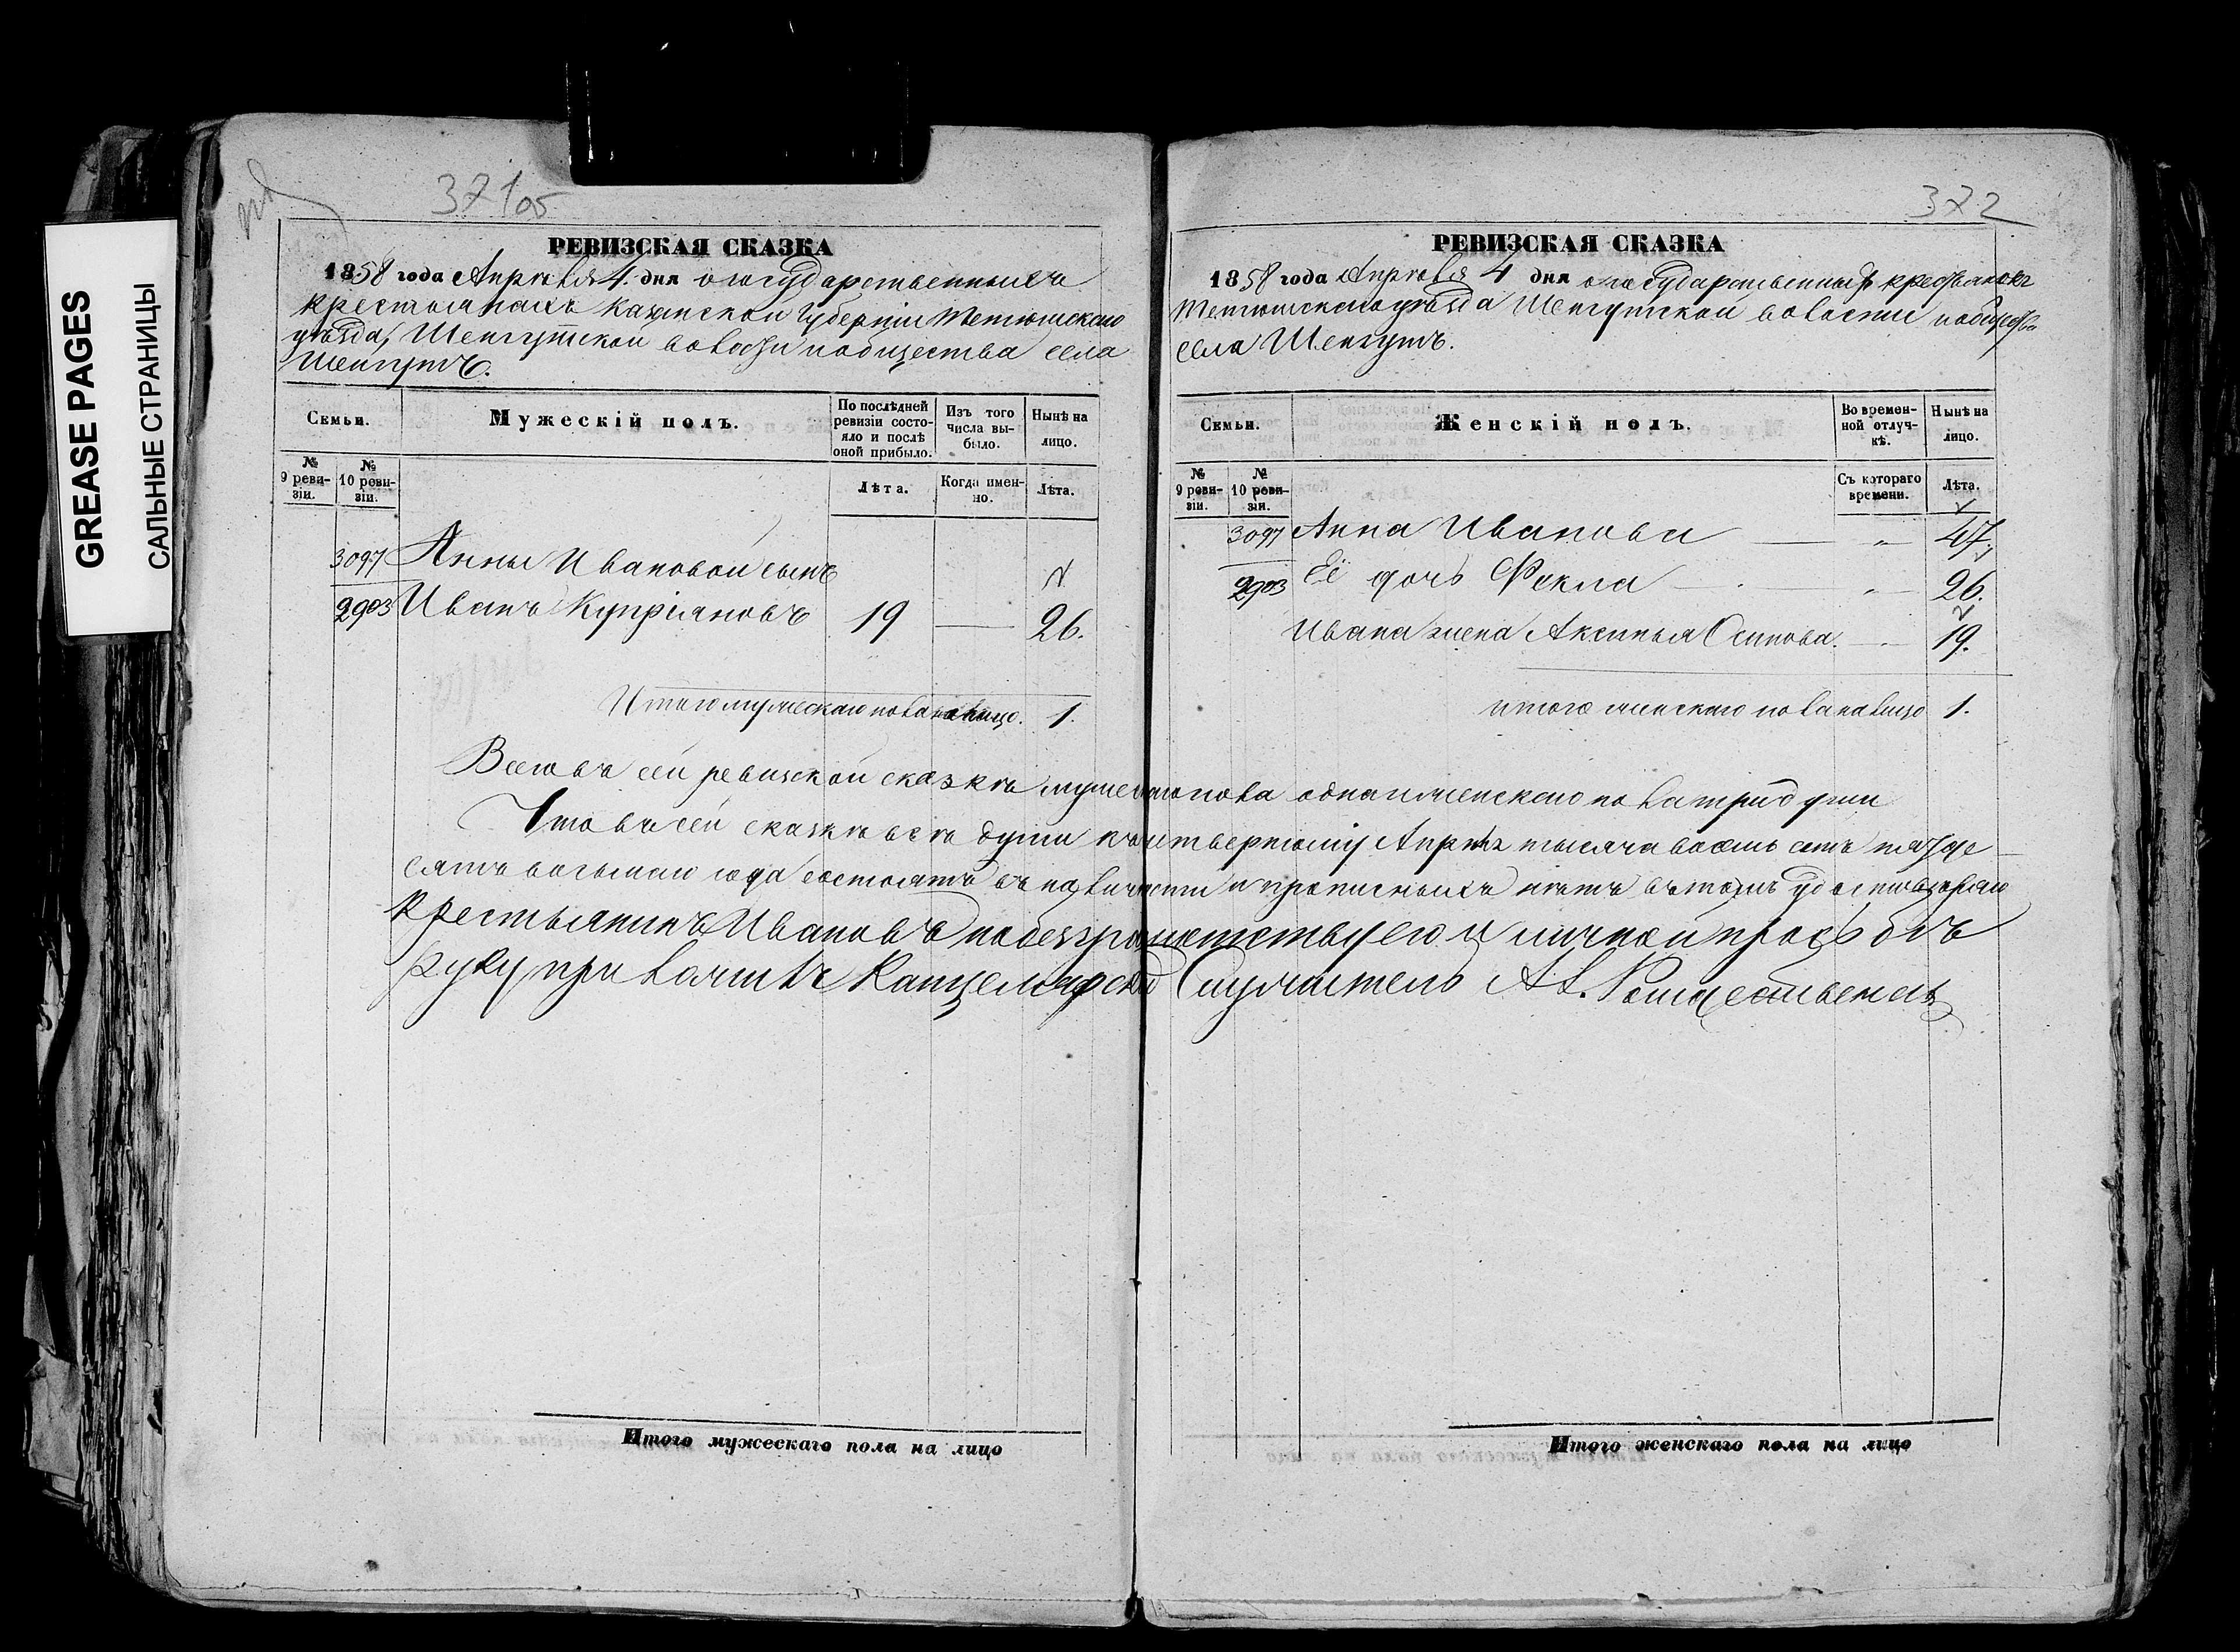 GREASE PAGES
САЛЬНЫЕ СТРАНИЦЫ
371об
РЕВИЗСКАЯ СКАЗКА
1858 года Апрѣля 4. дня о государственныхъ
крестьянахъ Казанской Губерніи Тетюшскаго
уѣзда, Шенгутской волости и общества села
Шенгутъ.
Семьи.
Мужескій полъ.
По послѣдней ревизіи состояло и послѣ оной прибыло.
Изъ того числа выбыло.
Нынѣ на лицо.
№ 9 ревизіи.
№ 10 ревизіи.
Лѣта.
Когда именно.
Лѣта.
3097 Анны Ивановой сынъ
2903 Иванъ Купріяновъ 19 — 26.
Итого мужескаго пола на лицо. 1.
372
РЕВИЗСКАЯ СКАЗКА
1858 года Апрѣля 4 дня о государственныхъ крестьянкахъ
Тетюшскаго уѣзда Шенгутской волости и общества
села Шенгутъ.
Семьи.
Женскій полъ.
Во временной отлучкѣ.
Нынѣ на лицо.
№ 9 ревизіи.
№ 10 ревизіи.
Съ котораго времени.
Лѣта.
3097 Анна Иванова — „ 47,
2903 Её дочь Фекла — „ 26.
Ивана жена Аксинья Осипова. — 19.
итого женскаго пола на лицо 1.
Всего въ сей ревизской сказкѣ мужескаго пола одна и женскаго пола три души
Что въ сей сказкѣ всѣ души къ четвертому Апрѣля тысяча восемь сотъ пятьде
сятъ восьмаго года состоятъ въ наличности и прописныхъ нѣтъ въ томъ удостовѣряю
Крестьянинъ Ивановъ а по безграмотству его и личной прозьбѣ
руку приложилъ Канцелярскій Служитель Ал. Рождественскій
Итого мужескаго пола на лицо
Итого женскаго пола на лицо